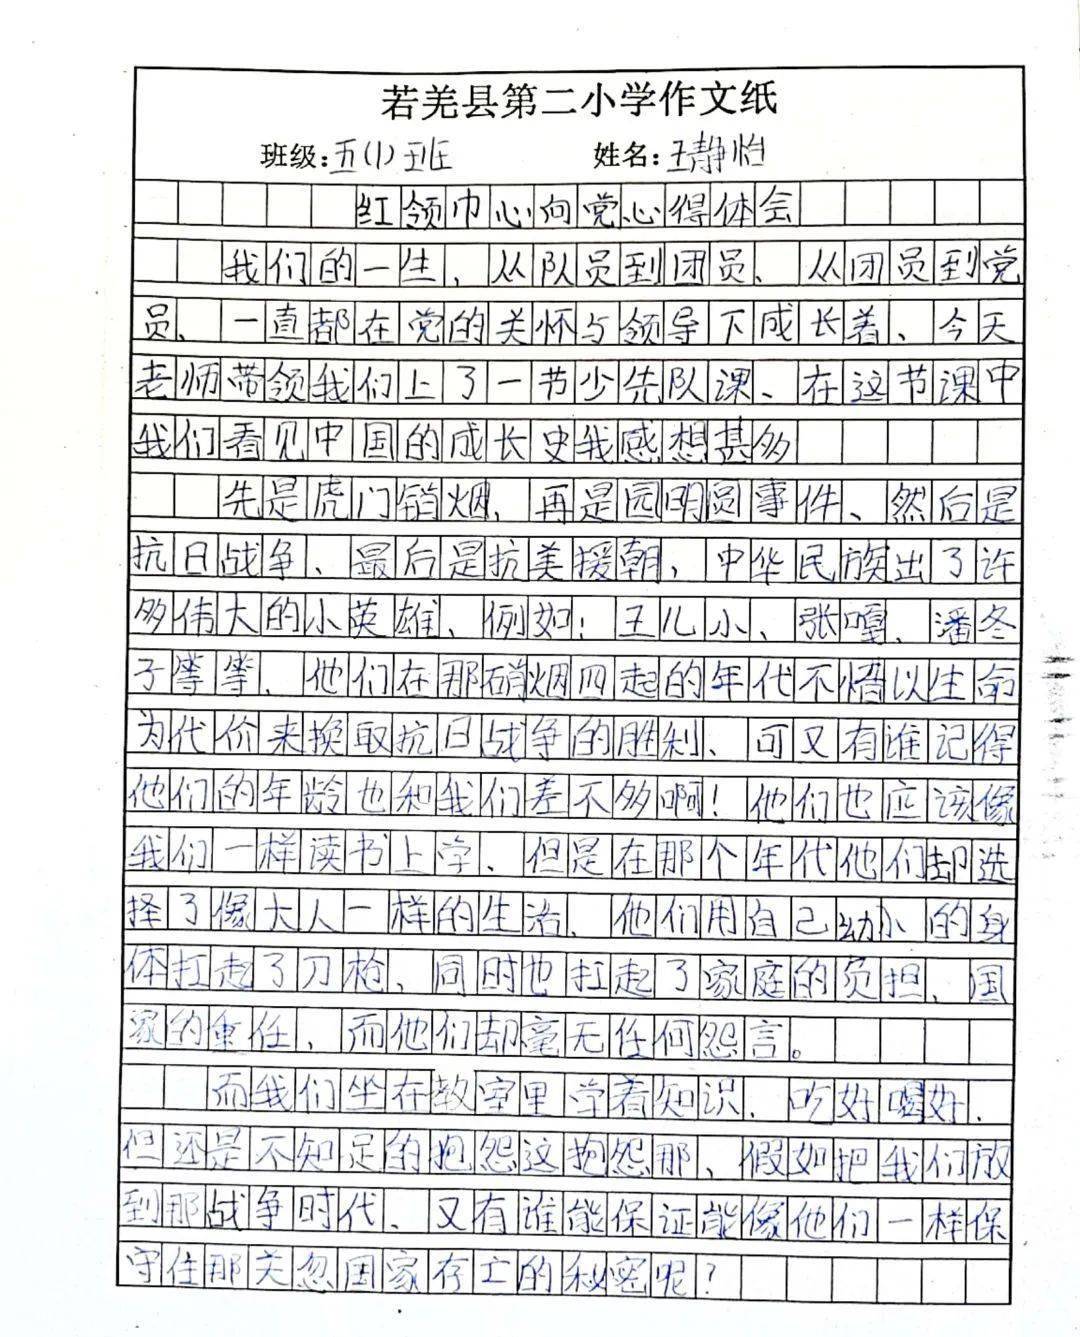 若羌县第二小学作文纸
班级:五(1)班 姓名:王静怡
红领巾心向党心得体会
我们的一生、从队员到团员、从团员到党
员、一直都在党的关怀与领导下成长着、今天
老师带领我们上了一节少先队课、在这节课中
我们看见中国的成长史我感想甚多
先是虎门销烟、再是园明圆事件、然后是
抗日战争、最后是抗美援朝、中华民族出了许
多伟大的小英雄、例如:王儿小、张嘎、潘冬
子等等、他们在那硝烟四起的年代不惜以生命
为代价来换取抗日战争的胜利、可又有谁记得
他们的年龄也和我们差不多啊!他们也应该像
我们一样读书上学、但是在那个年代他们却选
择了像大人一样的生活、他们用自己幼小的身
体扛起了刀枪、同时也扛起了家庭的负担、国
家的重任、而他们却毫无任何怨言。
而我们坐在教室里学着知识、吃好喝好、
但还是不知足的抱怨这抱怨那、假如把我们放
到那战争时代、又有谁能保证能像他们一样保
守住那关忽国家存亡的秘密呢?